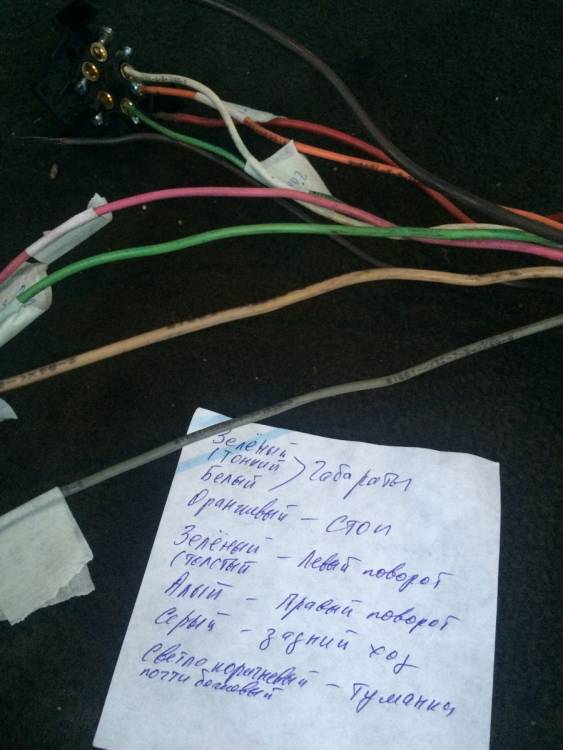 Зелёный
(тонкий
Белый
Габараты
Оранжевый - Стоп
Зелёный
(толстый - Левый поворот
Алый - Правый поворот
Серый - Задний ход
Светло коричневый - Туманки
почти бежевый